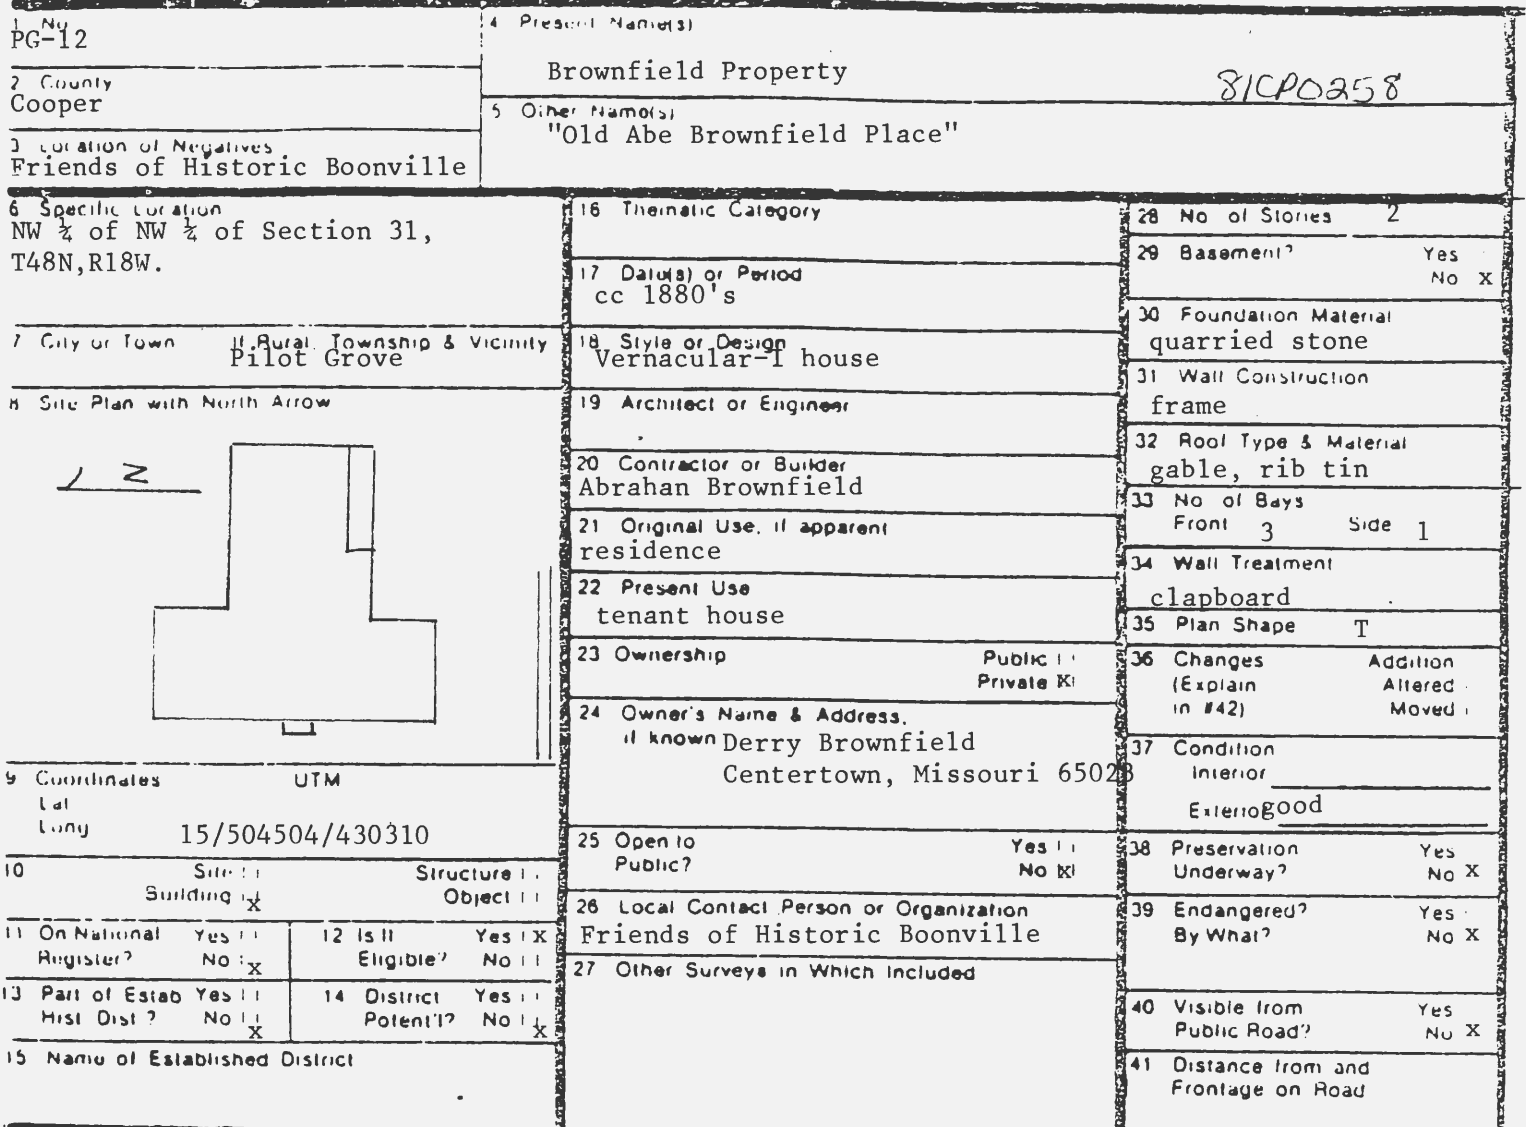 1 No
PG-12
4 Present Name(s)
Brownfield Property
81CP0258
2 County
Cooper
5 Other Name(s)
"Old Abe Brownfield Place"
3 Location of Negatives
Friends of Historic Boonville
6 Specific Location
NW ¼ of NW ¼ of Section 31,
T48N,R18W.
7 City or Town If Rural, Township & Vicinity
Pilot Grove
8 Site Plan with North Arrow
N
9 Coordinates UTM
Lat
Long 15/504504/430310
10 Site Structure
Building X Object
11 On National Yes
Register? No X
12 Is It Yes X
Eligible? No
13 Part of Estab Yes
Hist Dist? No X
14 District Yes
Potent'l? No X
15 Name of Established District
16 Thematic Category
17 Date(s) or Period
cc 1880's
18 Style or Design
Vernacular-I house
19 Architect or Engineer
20 Contractor or Builder
Abrahan Brownfield
21 Original Use, if apparent
residence
22 Present Use
tenant house
23 Ownership Public
Private X
24 Owner's Name & Address,
if known Derry Brownfield
Centertown, Missouri 65023
25 Open to Yes
Public? No X
26 Local Contact Person or Organization
Friends of Historic Boonville
27 Other Surveys in Which Included
28 No of Stories 2
29 Basement? Yes
No X
30 Foundation Material
quarried stone
31 Wall Construction
frame
32 Roof Type & Material
gable, rib tin
33 No of Bays
Front 3 Side 1
34 Wall Treatment
clapboard
35 Plan Shape T
36 Changes Addition
(Explain Altered
in #42) Moved
37 Condition
Interior
Exterior good
38 Preservation Yes
Underway? No X
39 Endangered? Yes
By What? No X
40 Visible from Yes
Public Road? No X
41 Distance from and
Frontage on Road